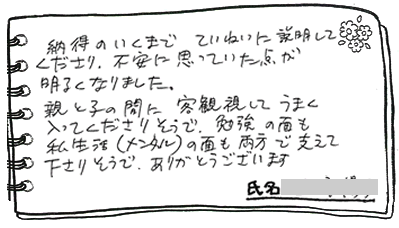 納得のいくまで ていねいに説明して
くださり、不安に思っていた点が
明るくなりました。
親と子の間に 客観視して うまく
入ってくださりそうで、勉強の面も
私生活(メンタル)の面も両方で支えて
下さりそうで、ありがとうございます
氏名